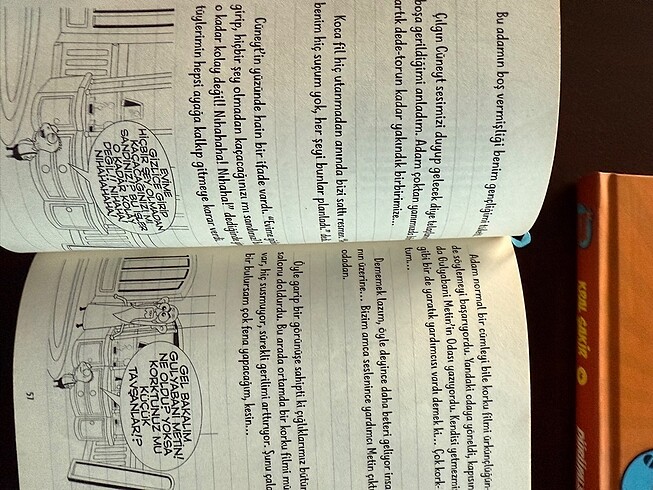 Bu adamın boş vermişliği benim gençliğimi
Çılgın Cüneyt sesimizi duyup gelecek diye
boşa gerildiğimi anladım. Adam çoktan yanımada
artık dede-torun kadar yakındık birbirimize...
Koca fil hiç utanmadan anında bizi sattı
benim hiç suçum yok, her şeyi bunlar planladı."
Cüneyt'in yüzünde hain bir ifade vardı.
girip, hiçbir şey olmadan kaçacağınızı mı
o kadar kolay değil! Nihahaha! Nihaha!" dediğinde
tüylerimin hepsi ayağa kalkıp gitmeye karar
EVİME
GİZLİCE GİRİP
HİÇBİR ŞEY OLMADAN
KAÇACAĞINIZI MI
SANDINIZ? BU İŞLER
O KADAR KOLAY
DEĞİL! NİHAHA
NİHAHAHAHA!
Adam normal bir cümleyi bile korku filmi
de söylemeyi başarıyordu. Yandaki odaya yöneldi,
da Gulyabani Metin'in Odası yazıyordu. Kendisi yetmezmiş
gibi bir de yaratık yardımcısı vardı demek ki... Çok
tum...
Dememek lazım, öyle deyince daha beteri geliyor
nın üzerine... Bizim amca seslenince yardımcı Metin
odadan.
Öyle garip bir görünüşe sahipti ki çığlıklarımız bütün
salonu doldurdu. Bu arada ortamda bir korku filmi
var, hiç susmuyor, sürekli gerilimi arttırıyor. Şunu
bir bulursam çok fena yapacağım, kesin...
GEL BAKALIM,
GULYABANİ METİN!
NE OLDU, YOKSA
KORKTUNUZ MU
KÜÇÜK
TAVŞANLAR!?
57
KRAL ŞAKİR